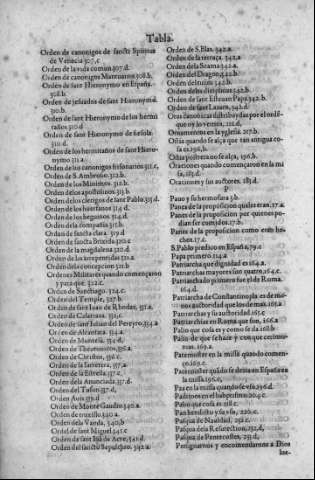 Tabla.
Orden de canonigos de sancti Spiritus
de Venecia 307.c
Orden de la vida comun 307.d.
Orden de canonigos Mantuanos 308.b.
Orden de sant Hieronymo en España.
308.b.
Orden de jesuados de sant Hieronymo
310.b.
Orden de sant Hieronymo de los hermi
taños 310.d
Orden de sant Hieronymo de fesola.
311.d.
Orden de los hermitaños de sant Hiero-
nymo 311.a
Orden de los canonigos 311.c.
Orden de S. Ambrosio. 312.b.
Orden de los Minimos. 312.b.
Orden de los apostolinos. 313.b
Orden de los clerigos de sant Pablo. 313.d
Orden de los 314.d
Orden de los 314.d
Orden de la compañia 315.b
Orden de sancta clara. 319.d
Orden de sancta Brigida 320.c
Orden de la magdalena 320.d
Orden de las arrepentidas 321.a
Orden de la concepcion 321.b
Ordenes Militares quando començaron
y para que. 322.c.
Orden de Sanctiago. 324.c.
Orden del Temple. 327.b
Orden de sant Iuan de Rhodas, 331.a.
Orden de Calatraua, 332.c
Orden de sant Iulian del Pereyro 334.a
Orden de Alcantara. 334.a
Orden de Montesa, 335.d
Orden de Theutonicos, 336.a
Orden de Christus, 336.c.
Orden de la 337.a
Orden de la Estrella 337.c.
Orden de la Anunciada. 337.d.
Orden del Tuson 337.d.
Orden Auis 339.d
Orden de Monte Gaudio 340.a
Orden de truxillo 340.a
Orden de la Vanda, 340.b
Orden de sant Miguel 341.c
Orden de sant de Acre, 341.d
Orden del sancto Sepulchro. 342.a
Orden de S. Blas. 342.a.
Orden de la terraça. 342.a
Orden de la Scama 342.a
Orden del Dragon, 342.b
Orden de 342.b.
Orden de los disciplinas 342.b
Orden de sant Esteuan Papa 342.b.
Orden de sant Lazaro, 342.d.
Otras canonicas distribuydas por el
que oy lo venera, 212.d.
Ornamentos en la yglesia. 217.b.
Ostias quando se alça que tan antigua co
sa es 196.b.
Ostia postrera no se alça, 196.b.
Oraciones quando començaron en la mi
sa, 183.d.
Oraciones y sus autores. 183.d.
P
Panes de la proposicion quales eran. 17.a.
Panes de la proposicion por quien se po-
dian ser comidos. 17.b.
Panes de la proposicion como eran he-
chos. 17.c.
S. Pablo predico en España, 79.c
Papa primero 154.a
Patriarcha que dignidad es 164.a.
Patriarchas mayores son quatro. 164.c.
Patriarchado primero fue el de Roma.
164.d.
Patriarcha de Constantinopla es de me-
nos auctoridad que los demas. 165.a
Patriarchas y su auctoridad 165.c
Patriarchas en Roma que son, 166.a
Palio que cosa es y como se da 168.b
Palio de que se haze y con que cerimo-
nias. 169.a.
Paternoster en la missa quando comen-
ço. 169.c.
Paternoster quando se dezia en España en
la missa 196.c.
Paz en la missa quando se vso 196.d.
Padrinos en el baptismo 204.c.
Palio que cosa es 218.c
Pan bendicto y su vso, 220.c.
Pasqua de Nauidad, 250.c.
Pasqua de la Resurection, 252.d,
Pasqua de Pentecostes, 253.d,
Peregrinos y encomendarnos a Dios